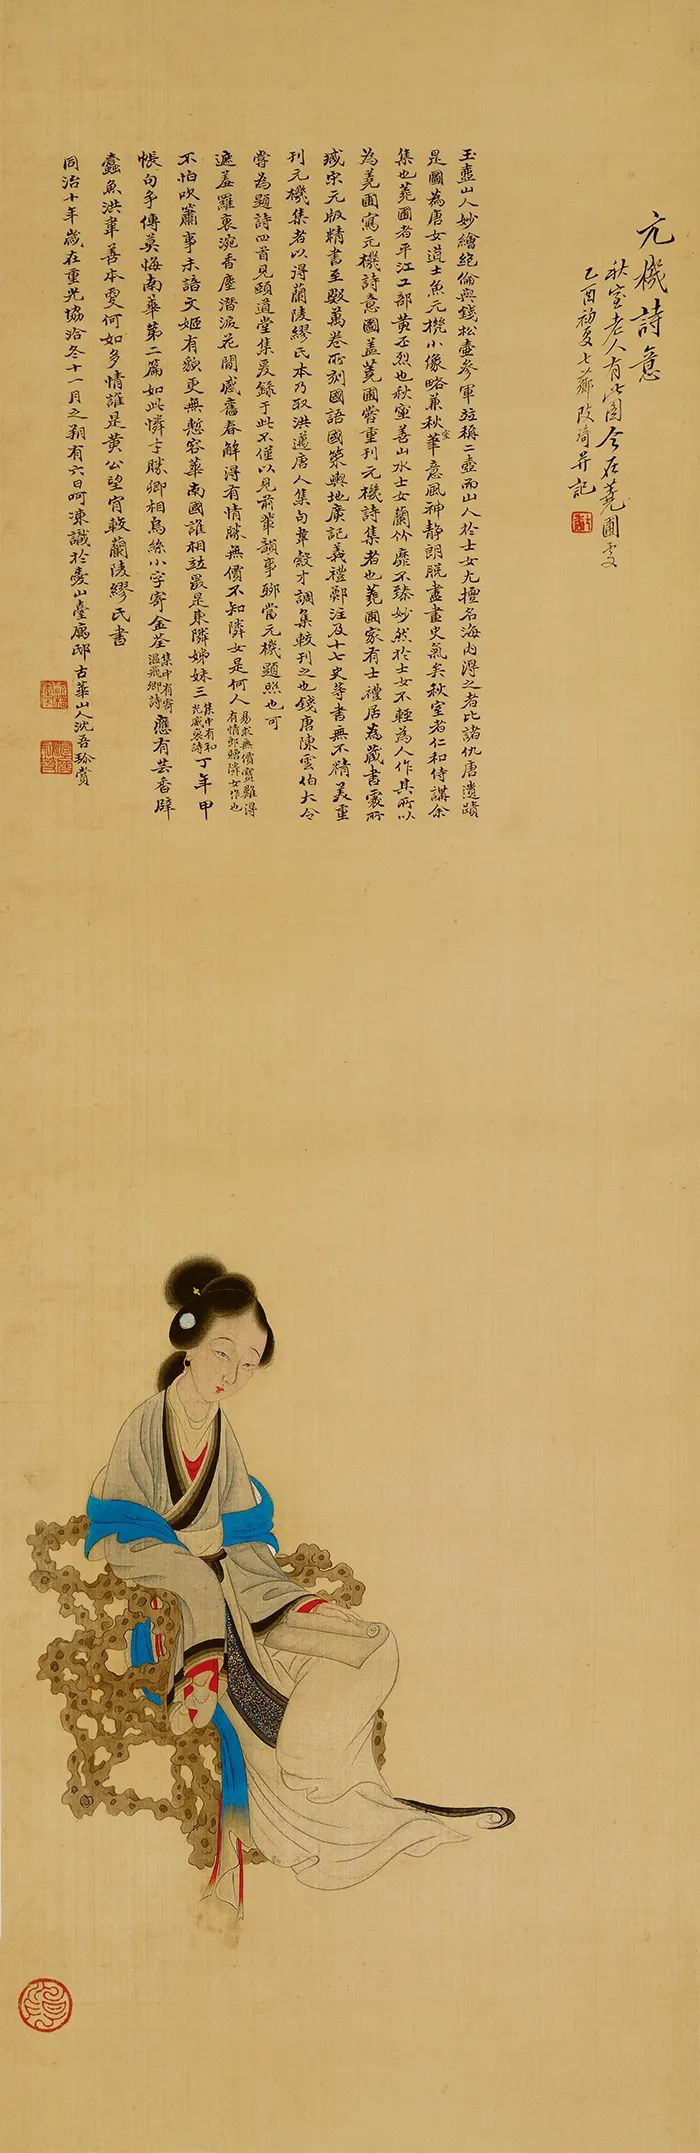 元機詩意
秋室老人有此圖今在蕘圃處
乙酉初夏七薌改琦并記
玉壺山人妙繪絕倫與錢松壺參軍竝稱二壺而山人於士女尤擅名海內得之者比諸仇唐遺蹟
是圖為唐女道士魚元機小像略兼秋室華意風神靜朗脫盡畫史氣矣秋室者仁和侍講余
集也蕘圃者平江工部黃丕烈也秋室善山水士女蘭竹靡不臻妙然於士女不輕為人作其所以
為蕘圃寫元機詩意圖蓋蕘圃嘗重刊元機詩集者也蕘圃家有士禮居為藏書處所
臧宋元版精書至數萬卷所刻國語國策輿地廣記義禮鄭注及十七史等書無不精美重
刊元機集者以得蘭陵繆氏本乃取洪邁唐人集句韋縠才調集較刊之也錢唐陳雲伯大令
嘗為題詩四首見頤道堂集爰錄于此不僅以見前輩韻事聊當元機題照也可
遮羞羅裹涴香塵潛淚花間感舊春解得有情勝無價不知隣女是何人易求無價寶難得有情郎贈隣女作也
不怕吹簫事未諳文姬有貌更無慙容華南國誰相竝最是東隣姊妹三集中有和光威裒詩丁年甲
帳句爭傳莫悔南華第二篇如此憐才勝卿相烏絲小字寄金荃集中有寄溫飛卿詩應有芸香辟
蠹魚洪韋善本更何如多情誰是黃公望宵較蘭陵繆氏書
同治十年歲在重光協洽冬十一月之朔有六日呵凍識於愛山臺廡邸古華山人沈吾珍賞